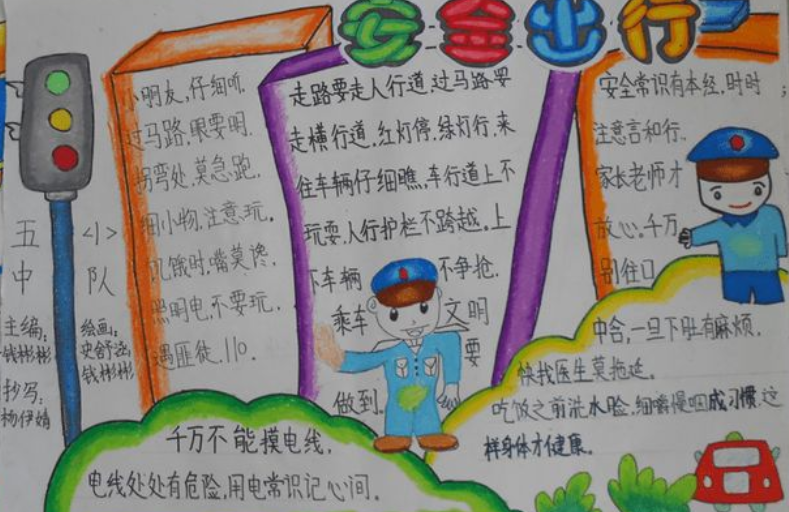 安全出行
小朋友,仔细听,
过马路,眼要明,
拐弯处,莫急跑,
细小物,注意玩,
饥饿时,嘴莫馋,
照明电,不要玩,
遇匪徒,110。
走路要走人行道,过马路要
走横行道,红灯停,绿灯行,来
往车辆仔细瞧,车行道上不
玩耍,人行护栏不跨越。上
下车辆 不争抢,
乘车 文明
要
做到。
安全常识有本经,时时
注意言和行。
家长老师才
放心。千万
别往口
中含,一旦下肚有麻烦,
快找医生莫拖延。
吃饭之前洗水脸,细嚼慢咽成习惯,这
样身体才健康。
五<1>
中队
主编:
钱彬彬
抄写:
杨伊婧
绘画:
史舒涵
钱彬彬
千万不能摸电线,
电线处处有危险,用电常识记心间。